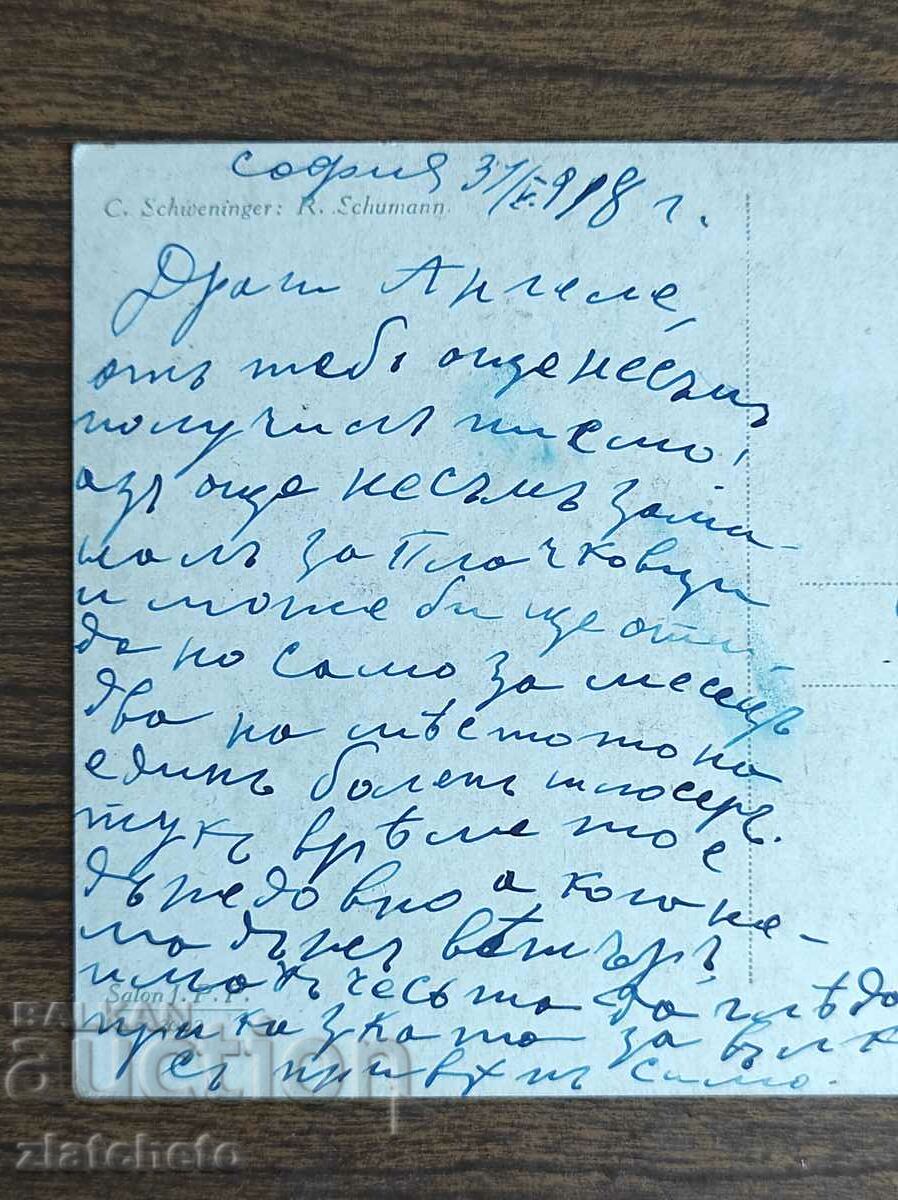 София 31/V.918 г.
C. Schweninger: R. Schumann.
Драги Ангеле,
отъ тебъ още несъмъ
получилъ писмо,
азъ още несъмъ зами-
налъ за Плачковци
и може би ще оти-
да но само за месецъ
два на мѣстото на
единъ боленъ шлосеръ.
тукъ врѣмето е
дъждовно а кога не-
ма дъжъ вѣтъръ
имахъ честьта да глѣда
приказката за вълк
съ привѣтъ
Salon J. P. P.
BALKAN
auction
zlatcheto